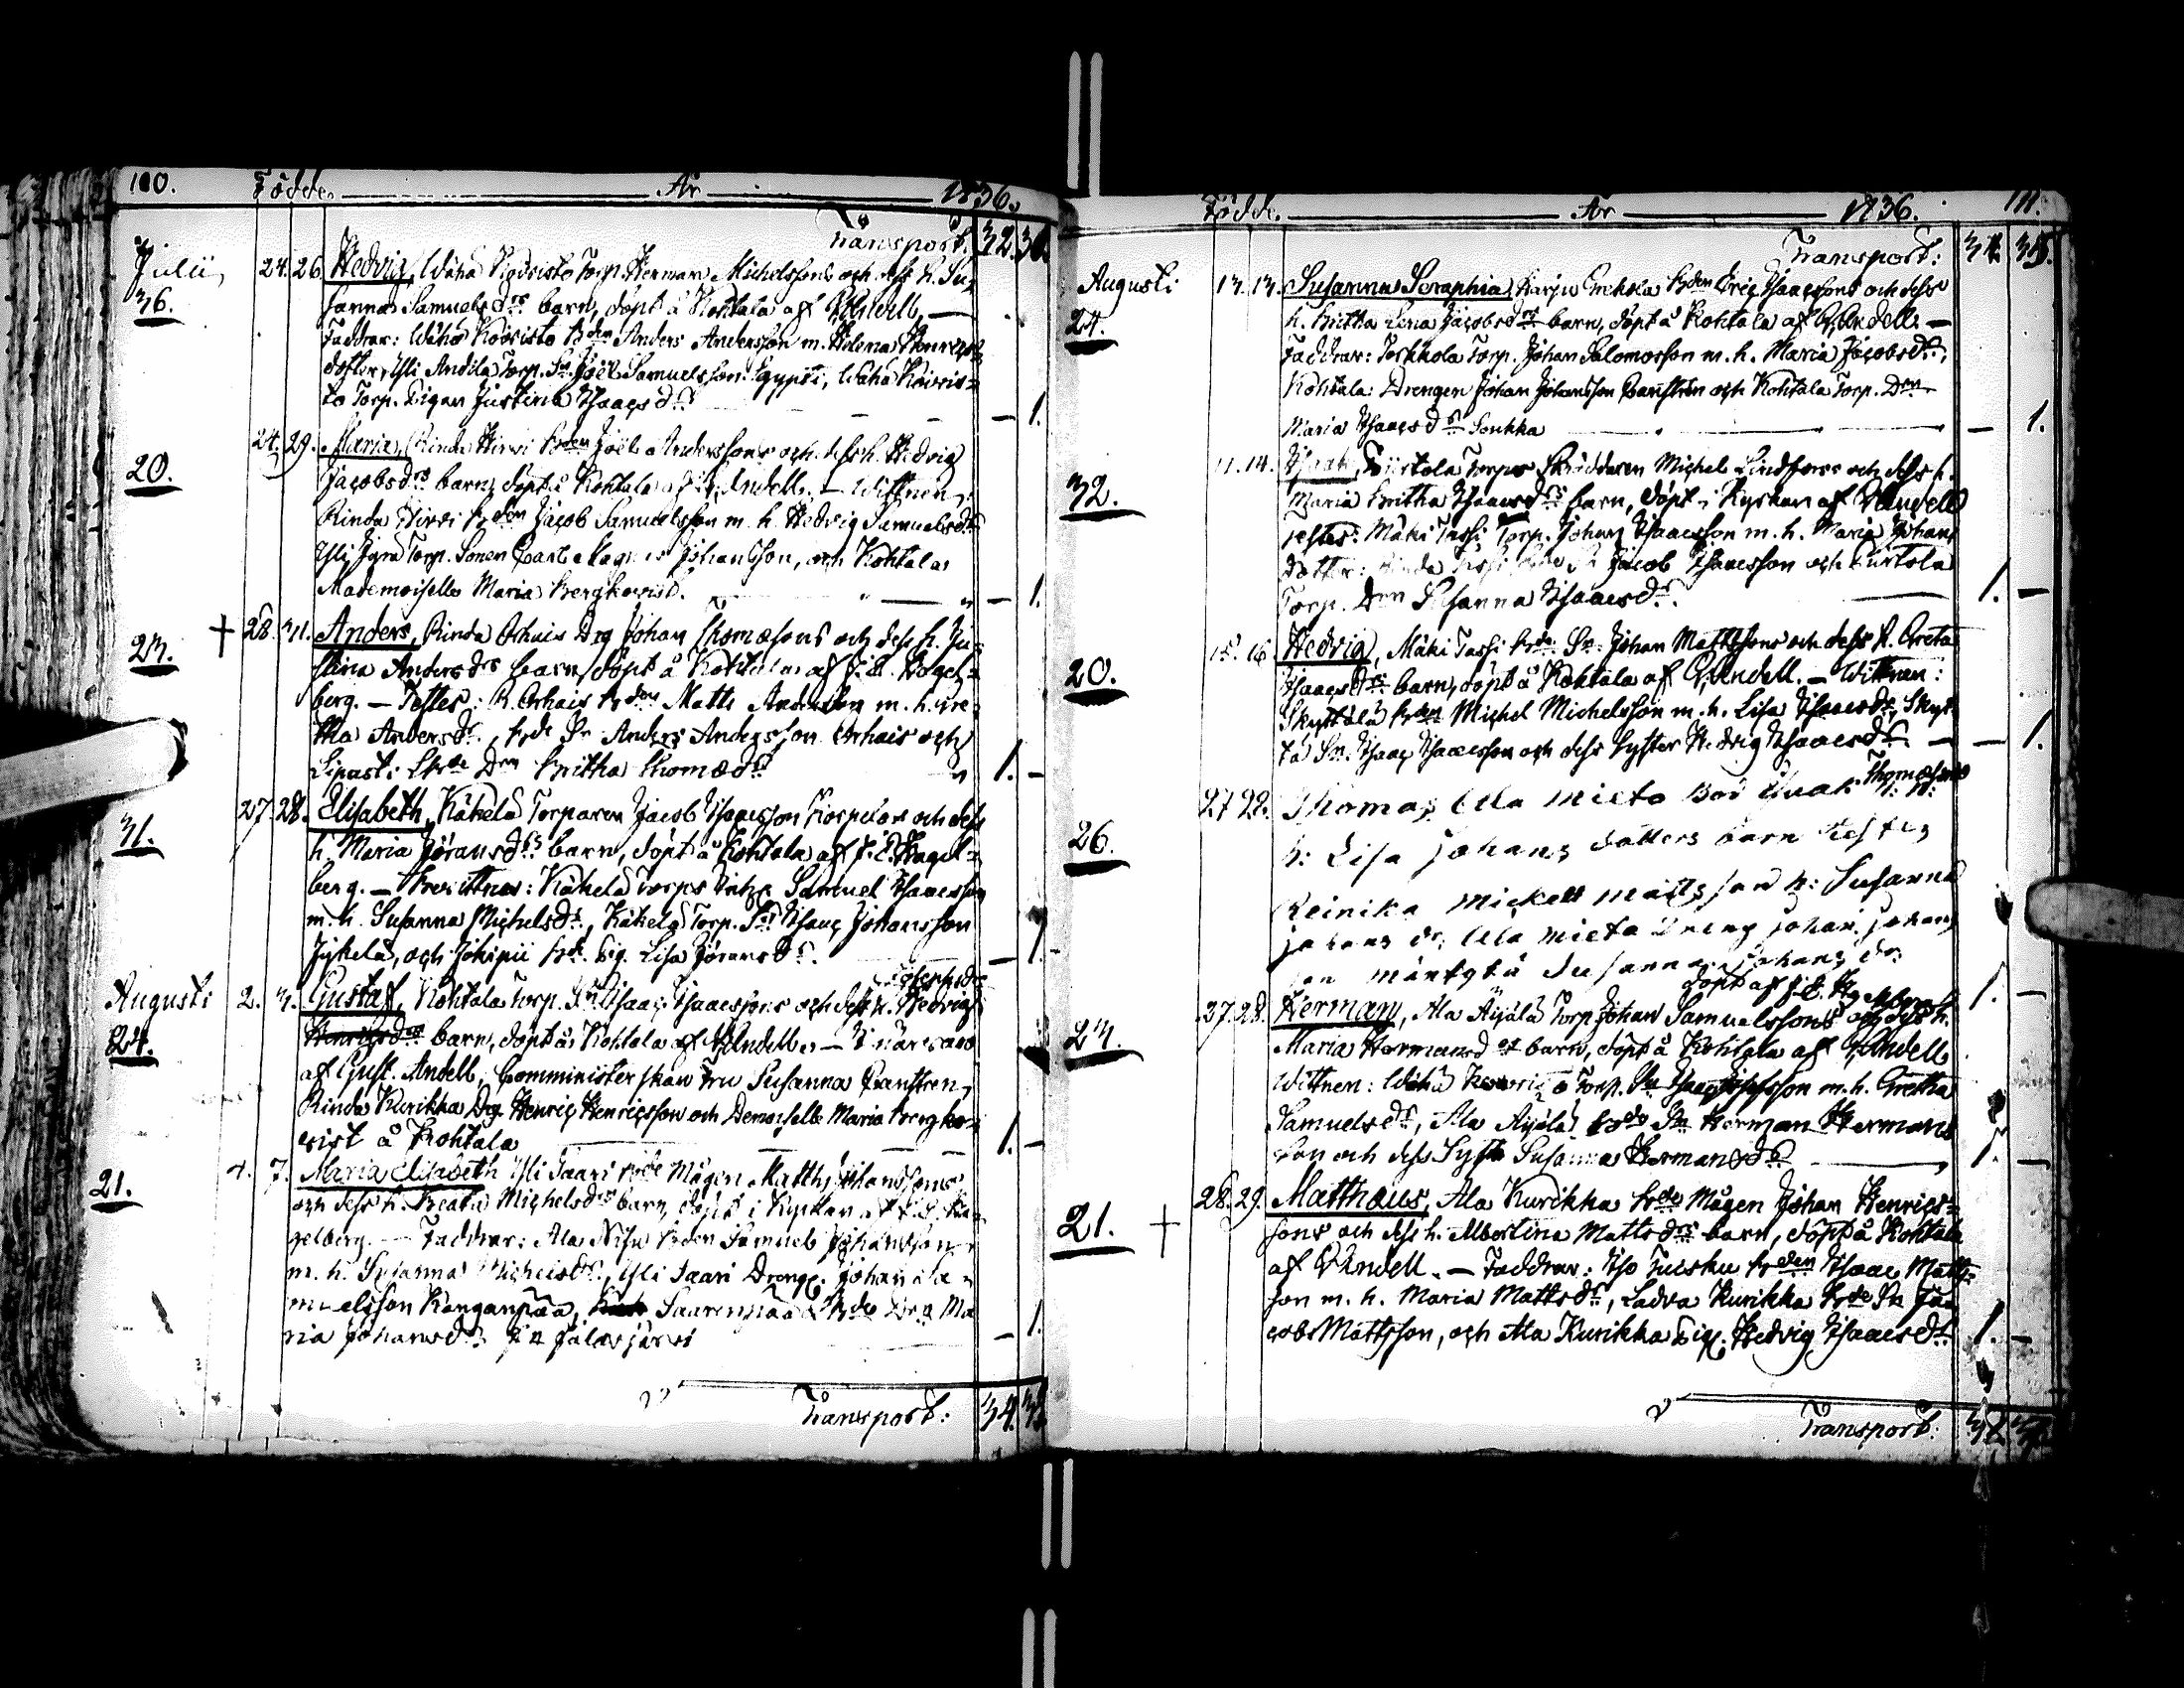 110. Födde. År 1836.
Transport: 32. 30.
Julii 24. 26. Hedvig, Wäha Koivisto Torp. Herman Michelssons och dess h. Su-
36. sanna Samuelsdrs barn, döpt å Kohtala af Andell, —
Faddrar: Wäha Koivisto Bden Anders Andersson m. Helena Henrics-
dotter, Yli Andila Torp. Sn Joël Samuelsson Egypti, Wäha Koivis-
to Torp. Pigan Justina Isaacsdr — 1.
24. 29. Maria, Rinda Hirvi Bden Joël Anderssons och dess h. Hedvig
20. Jacobsdrs barn, döpt å Kohtala af Andell. — Wittnen:
Rinda Hirvi Bden Jacob Samuelsson m. h. Hedvig Samuelsdr
Yli Jyrä Torp. Sonen Carl Magnus Johansson, och Kohtala
Mademoiselle Maria Bergkvist. — 1.
† 28. 31. Anders, Rinda Orhais Drg Johan Thomæsons och dess h. Ju-
23. stina Andersdrs barn, döpt å Kohtala af J. E. Hagel-
berg. — Testes: R. Orhais Bden Matts Andersson m. h. Gre-
tha Andersdr, Bde Sn Anders Andersson Orhais och
Lipasti Bde Dn Britha Thomædr 1. —
27. 28. Elisabeth, Käkelä Torparen Jacob Isaacsson Korpelas och dess
31. h. Maria Jöransdrs barn, döpt å Kohtala af J. E. Hagel-
berg. — Wittnen: Käkelä Torps Samuel Isaacsson
m. h. Susanna Michelsdr, Käkelä Torp. Sn Isaac Johansson
Jykelä, och Jokipii Bde Pig. Lisa Jöransdr. — 1.
Josephsdrs
Augusti 2. 3. Gustaf, Kohtala Torp. Sn Isaac Isaacssons och dess h. Hedvig
24. Henricsdrs barn, döpt å Kohtala af Andell. — I närvaro
af Gust. Andell, Comministerskan Fru Susanna Castren,
Rinda Kurikka Drg Henric Henricsson och Demoiselle Maria Bergkv-
vist å Kohtala 1. —
4. 7. Maria Elisabeth Yli Saari Bde Mågen Matths Johanssons
21. och dess h. Beata Michelsdrs barn, döpt i Kyrkan af J. E. Ha-
gelberg. — Faddrar: Ala Nisu Bden Samuel Johansson
m. h. Susanna Michelsdr, Yli Saari Drenge. Johan Sa-
muelsson Kanganpää, Saarenpää Bde Drn Ma-
ria Johansdr fr Jalasjärvi — 1.
Transport: 34.
Födde. År 1836. 111.
Transport: 34. 35.
Augusti 13. 13. Susanna Seraphia, Harju Erkkola Bden Eric Isaacsons och dess
24. h. Britha Lena Jacobsdrs barn, döpt å Kohtala af Andell. —
Faddrar: Torkkola Torp. Johan Salomosson m. h. Maria Jacobsdr,
Kohtala: Drengen Johan Johansson Castren och Kohtala Torp. Drn
Maria Isaacsdr Soukka — 1.
11. 14. Isaak, Tuirtola Torps Skräddaren Michel Lindfors och dess h.
32. Maria Britha Isaacsdrs barn, döpt i Kyrkan af Andell
Testes: Mäki Tassi Torp. Johan Isaacsson m. h. Maria Johans
dotter: Rinda Jacob Isaacsson och Tuirtola
Torp. Drn Susanna Isaacsdr. 1. —
15. 16. Hedvig, Mäki Tassi Bde Sn Johan Mattssons och dess h. Greta
20. Isaacsdrs barn, döpt å Kohtala af Andell. — Wittnen:
Skyttälä Bden Michel Michelsson m. h. Lisa Isaacsdr, Skyt-
tä Sn. Isaac Isaacsson och dess Syster Hedvig Isaacsdr — — 1.
Thomæsons
27 28. Thomas Ala Mieto Bos Isaak h:
26. h: Lisa johans dotters barn testes
Reinika mickell maitsson h: Susanna
johans dr, Ala mieta Dreng johan johans
son mäntystä Susanna johans dr
döpt af J. E. Hagelberg 1. —
27. 28. Herman, Ala Äijälä Torp. Johan Samuelssons och dess h.
23. Maria Hermansdrs barn, döpt å Kohtala af Andell
Wittnen: Wähä Torp. Sn Isaac Josefsson m. h. Gretha
Samuelsdr, Ala Äijälä Bde Sn Herman Hermans
son och dess Syster Susanna Hermansdr 1. —
28. 29. Matthæus, Ala Kurikka Bde Mågen Johan Henrics-
21. † sons och dess h. Albertina Mattsdrs barn, döpt å Kohtala
af Andell. — Faddrar: Iso Juesku Bden Isaac Matts-
son m. h. Maria Mattsdr, Ladva Kurikka Bde Sn Ja-
cob Mattsson, och Ala Kurikka Pig. Hedvig Isaacsdr 1. —
Transport: